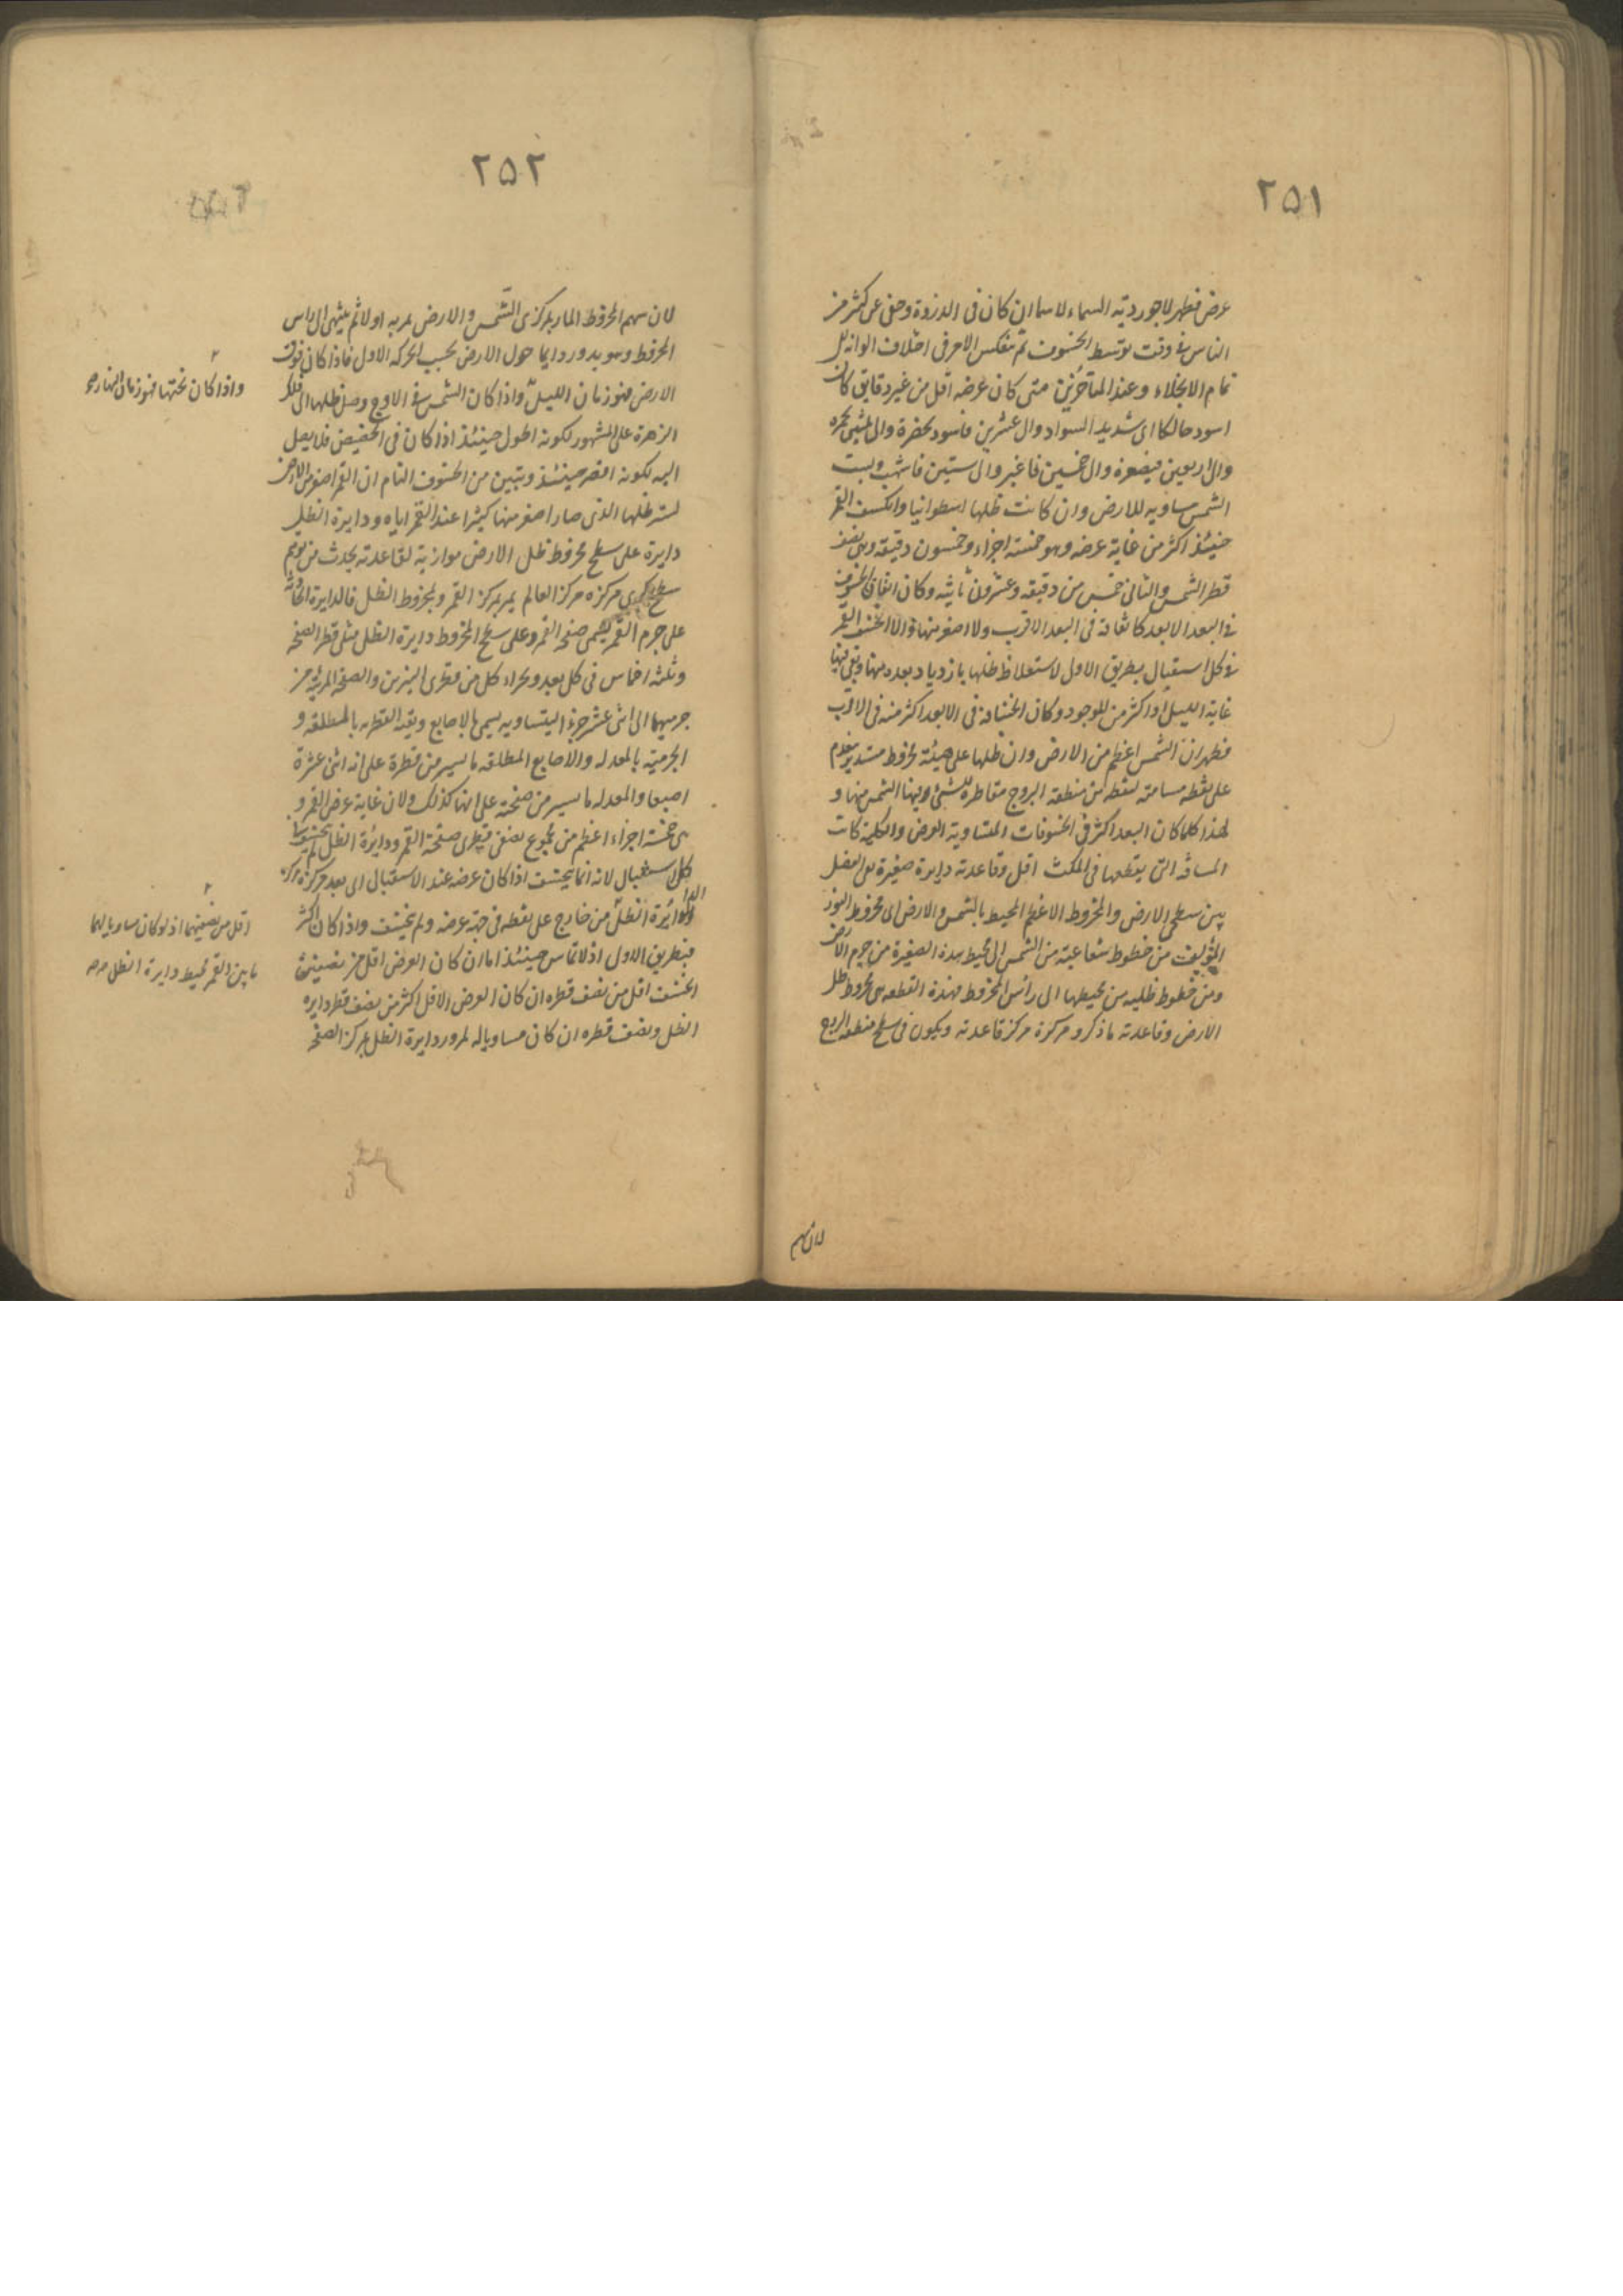 ٢٥١
عرض فظهر لاجوردية السماء لا سيما ان كان فى الذروة وخفى عن كثير من
الناس فى وقت توسط الخسوف ثم ينعكس الامر فى اختلاف الوانه الى
تمام الانجلاء وعند المتأخرين متى كان عرضه اقل من عشر دقايق كان
اسود حالكا اى شديد السواد والى عشرين فاسود بخضرة والى ثلثين بحمرة
والى اربعين فبصفرة والى خمسين فاغبر والى ستين فاشهب وليست
الشمس مساويه للارض وان كانت ظلها اسطوانيا وانكسف القمر
حينئذ اكثر من غاية عرضه وهو خمسة اجزاء وخمسون دقيقة وهى نصف
قطر الشمس والثانى خمس من دقيقه وعشرون ثانيه وكان الخسوف
فى البعد الابعد كا فى البعد الاقرب ولا اصغر منها والا انخسف القمر
فى كل استقبال بطريق الاولى لاستغلاظ ظلها بازدياد بعده منها وبقى فيها
غاية الليل او اكثر من الموجود وكان انخسافه فى الابعد اكثر منه فى الاقرب
فظهر ان الشمس اعظم من الارض وان ظلها على هيئة مخروط مستدير ينعدم
على نقطه مسامتة لنقطه من منطقة البروج مقاطرة للشئ وفيها الشمس منها و
لهذا كلما كان البعد اكثر فى الخسوفات المتساوية العرض والكلية كانت
المسافة التى يقطعها فى المكث اقل وقاعدته دايرة صغيرة هى الفصل
بين سطحى الارض والمخروط الاعظم المحيط بالشمس والارض اى مخروط النور
المؤلف من خطوط شعاعية من الشمس الى محيط هذه الصغيرة من جرم الارض
ومن خطوط ظليه من محيطها الى رأس المخروط فهذه القطعه هى مخروط ظل
الارض وقاعدته ما ذكر ومركزه مركز قاعدته ويكون فى سطح منطقه البروج
لان سهم
٢٥٢
لان سهم المخروط المار بمركزى الشمس والارض يمر به اولا ثم ينتهى الى راس
المخروط وهو يدور دايما حول الارض بحسب الحركه الاولى فاذا كان فوق
الارض فهو زمان الليل واذا كان الشمس فى الاوج وصل ظلها الى فلك
الزهرة على المشهور لكونه اطول حينئذ اذا كان فى الحضيض فلا يصل
اليه لكونه اقصر حينئذ ويتبين من الخسوف التام ان القمر اصغر من الارض
لستر ظلها الذى صار اصغر منها كثيرا عند القمر اياه ودايرة الظل
دايرة على سطح مخروط ظل الارض موازية لقاعدته يحدث من توهم
سطح كرى مركزه مركز العالم يمر بمركز القمر وبمخروط الظل فالدايرة الحادثة
على جرم القمر يسمى صفحة القمر وعلى سطح المخروط دايرة الظل مثلى قطر الصفحة
وثلثه اخماس فى كل بعد ويجزاء كل من قطرى النيرين والصفحة المرئية من
جرميهما الى اثنى عشر جزءا متساويه يسمى بالاصابع ويقيد القطريه بالمطلقه و
الجرمية بالمعدله والاصابع المطلقه ما يستر من قطره على انه اثنى عشرة
اصبعا والمعدله ما يستر من صفحة على انها كذلك ولان غاية عرض القمر و
هى خمسة اجزاء اعظم من مجموع نصفى قطرى صفحة القمر ودايرة الظل لم ينخسف
كل استقبال لانه انما ينخسف اذا كان عرضه عند الاستقبال اى بعد مركزه مركز
دايرة الظل من خارج على نقطه فى جهة عرضه ولم ينخسف واذا كان اكثر
فبطريق الاولى اذ لا تماس حينئذ اما ان كان العرض اقل من نصفيهما
انخسف اقل من نصف قطره ان كان العرض الاقل اكثر من نصف قطر دايره
الظل ونصف قطره ان كان مساويا له لمرور دايرة الظل بمركز الصفحة
واذا كان تحتها فهو زمان النهار صح
اقل من نصفيهما اذ لو كان مساويا لهما
ماس القمر محيط دايرة الظل صح